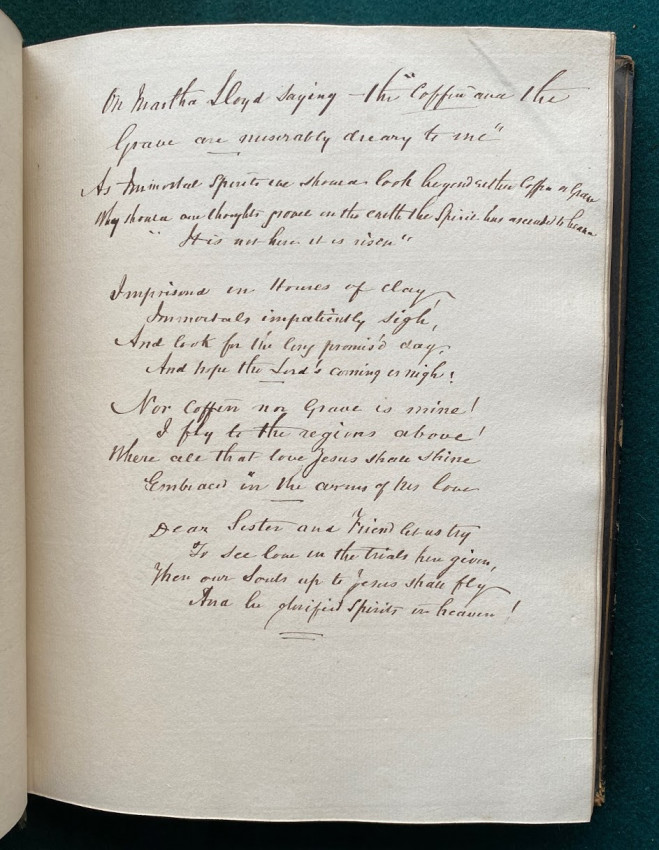 On Martha Lloyd saying - the "Coffin and the
Grave are miserably dreary to me"
As Immortal Spirits we should look beyond either Coffin or Grave
Why should our thoughts grovel in the earth the Spirit has ascended to heaven
"It is not here it is risen"
Imprisond in Houses of clay
Immortals impatiently sigh,
And look for the long promis'd day,
And hope the Lord's coming is nigh!
Nor Coffin nor Grave is mine!
I fly to the regions above!
Where all that love Jesus shall shine
Embrac'd in the arms of his love
Dear Sister and Friend let us try
To see love in the trials here given,
Then our Souls up to Jesus shall fly
And be glorified Spirits in heaven!